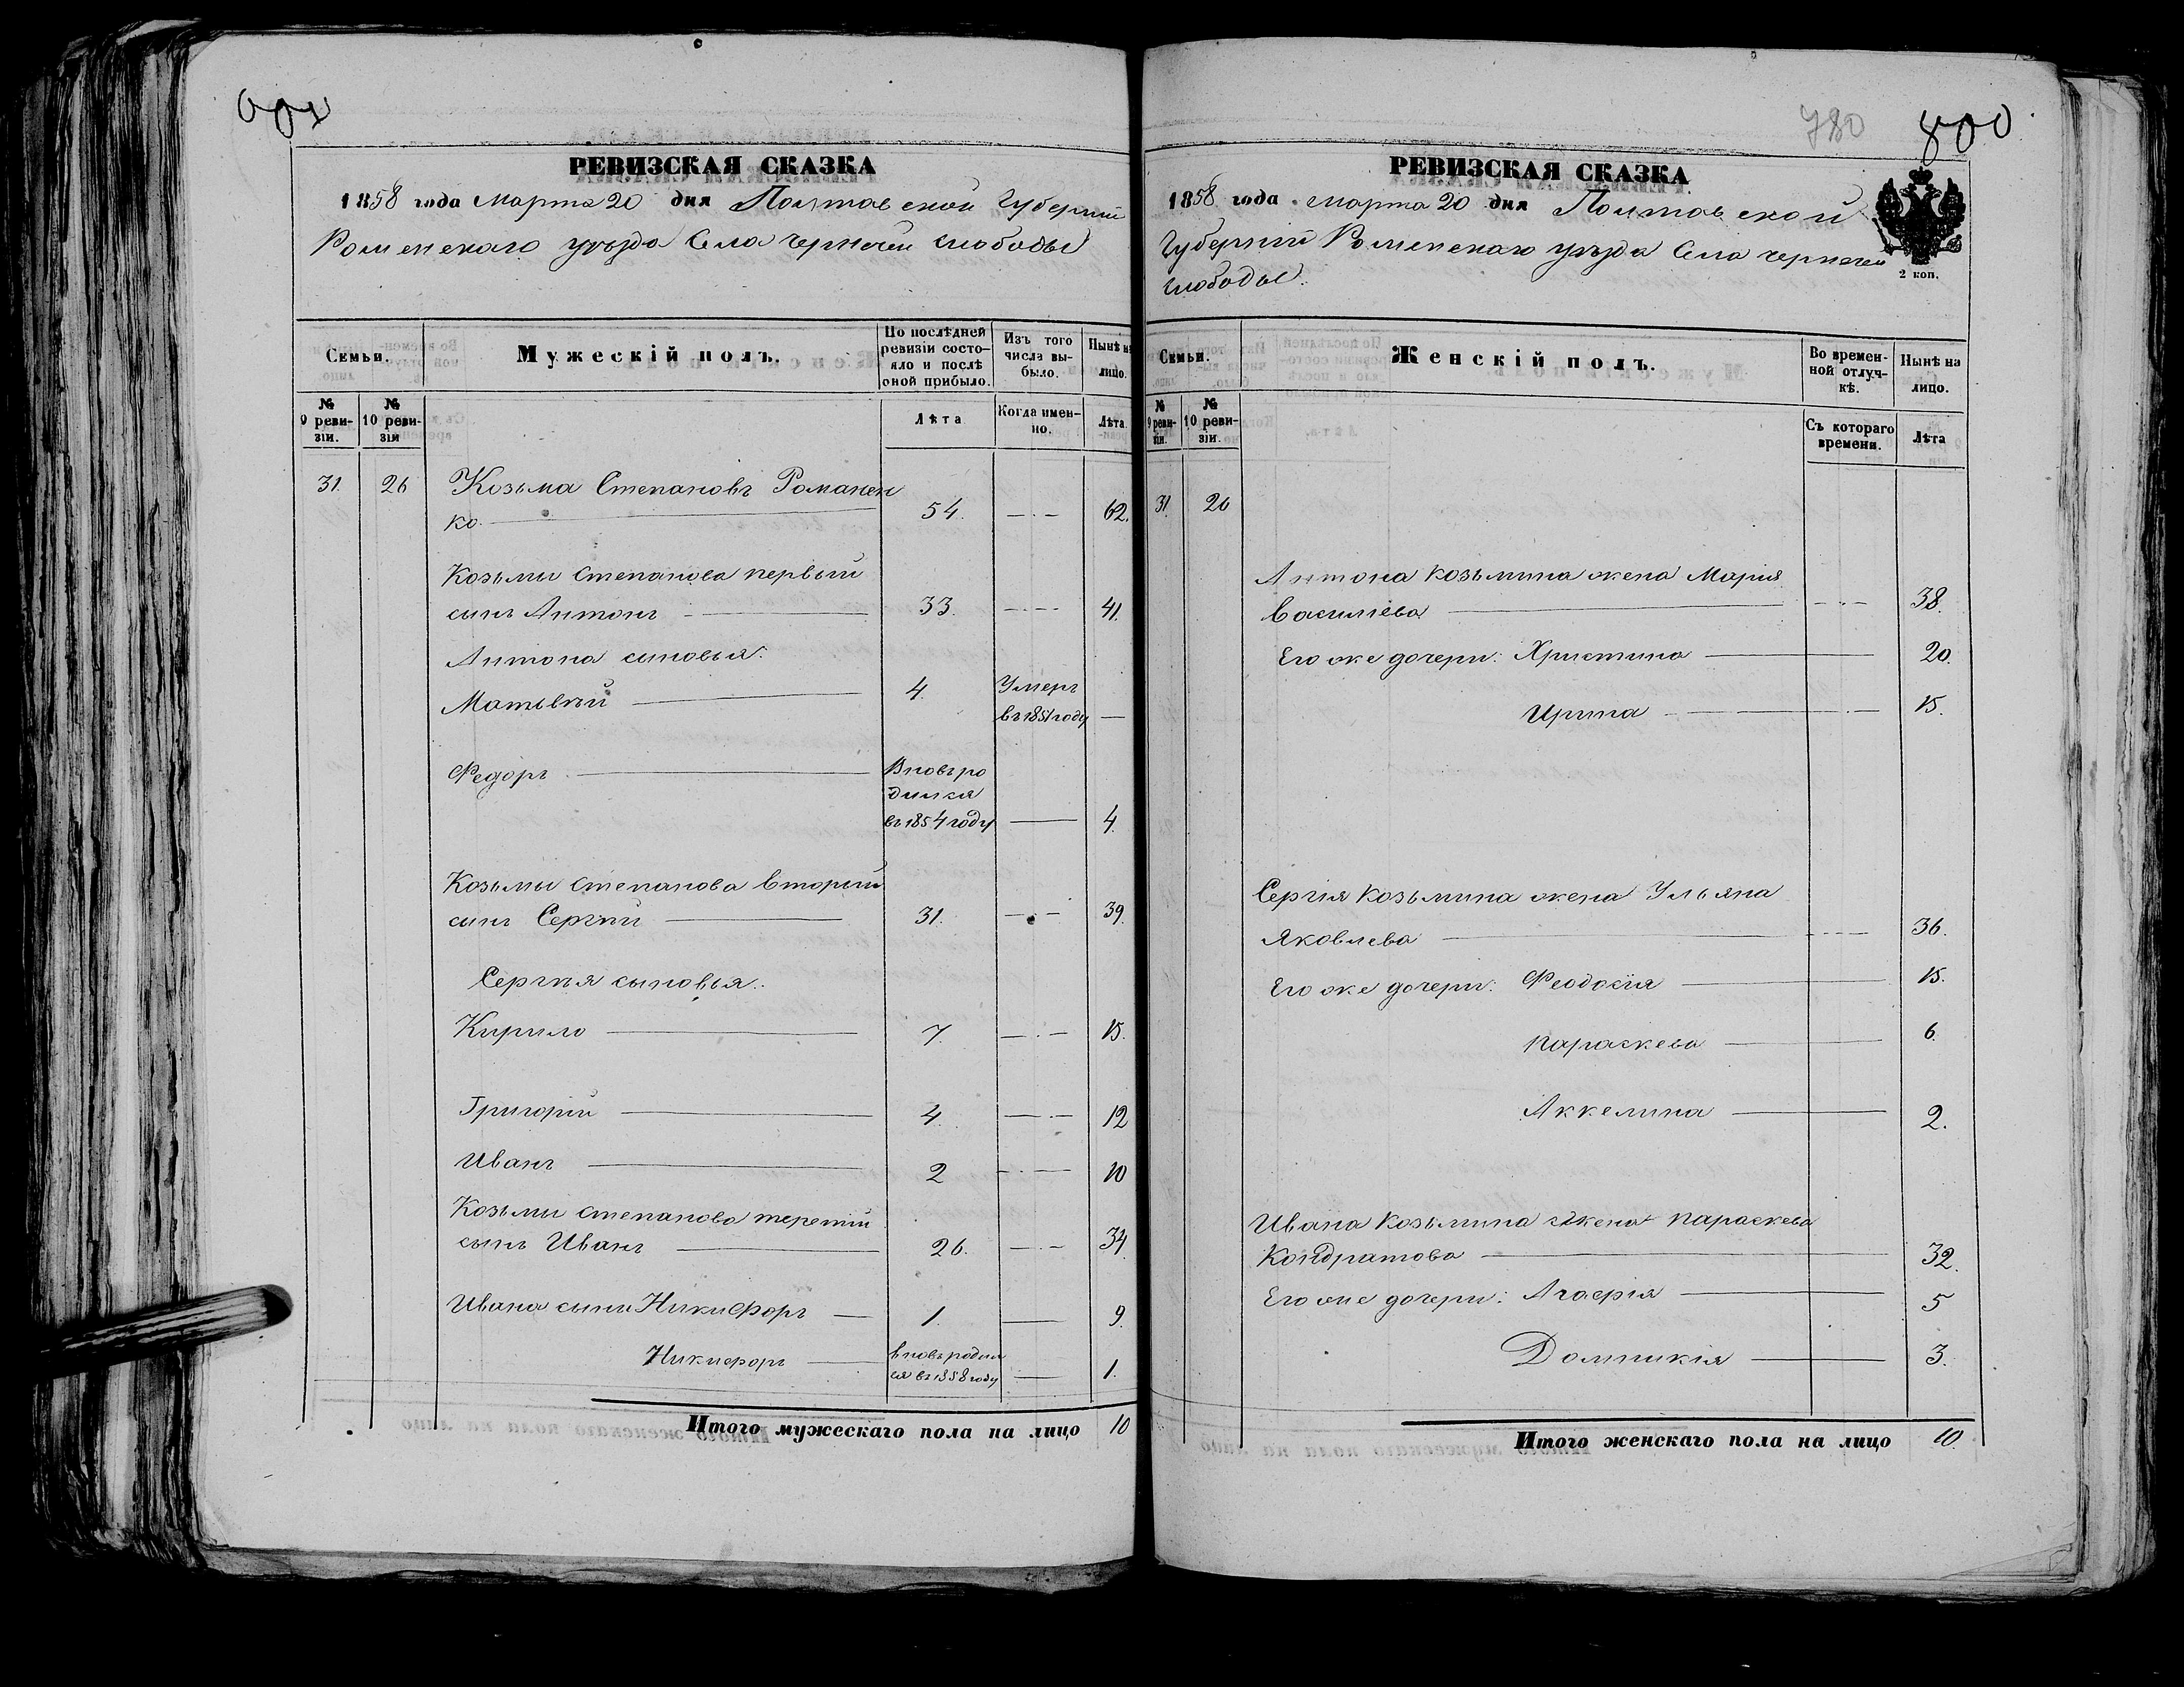 РЕВИЗСКАЯ СКАЗКА
1858 года Марта 20 дня Полтавской Губерніи
Роменскаго уѣзда Села Чернечей слободы
Семьи.
Мужескій полъ.
По послѣдней ревизіи состо-
яло и послѣ
оной прибыло.
Изъ того
числа вы-
было.
Нынѣ на
лицо.
№
9 реви-
зіи.
№
10 реви-
зіи
Лѣта
Когда имен-
но.
Лѣта
31. 26 Козьма Степановъ Романен
ко. 54. 62.
Козьмы Степанова первый
сынъ Антонъ 33. 41.
Антона сыновья:
Матьвѣй 4. Умеръ
въ 1851 году
Федоръ Вновь ро
дился
въ 1854 году 4.
Козьмы Степанова вторый
сынъ Сергѣй 31. 39.
Сергѣя сыновья:
Кирило 7. 15.
Григорій 4. 12
Иванъ 2 10
Козьмы Степанова третій
сынъ Иванъ 26. 34.
Ивана сыны Никифоръ 1. 9.
Никифоръ вновь родил
ся въ 1858 году 1.
Итого мужескаго пола на лицо 10
780 800
РЕВИЗСКАЯ СКАЗКА
1858 года Марта 20 дня Полтавской
Губерніи Роменскаго уѣзда Села Чернечей
слободы.
2 коп.
Семьи.
Женскій полъ.
Во времен-
ной отлуч-
кѣ.
Нынѣ на
лицо.
№
9 реви-
зіи.
№
10 реви-
зіи.
Съ котораго
времени.
Лѣта
31. 26
Антона Козьмина жена Марія
Василіева 38.
Его же дочери: Христина 20.
Ирина 15.
Сергія Козьмина жена Ульяна
Яковлева 36.
Его же дочери: Феодосія 15.
Параскева 6.
Аккелина 2.
Ивана Козьмина жена Параскева
Кондратова 32.
Его же дочери: Агафія 5
Домникія 3.
Итого женскаго пола на лицо 10.